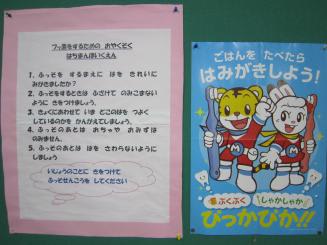 フッ素をするための おやくそく
はちまんほいくえん
1. ふっそを するまえに はを きれいに
みがきましたか?
2. ふっそをするときは ふざけて のみこまない
ように きをつけましょう。
3. きょくにあわせて いま どこのはを つよく
しているのかを かんがえてしましょう。
4. ふっそのあとは おちゃや おみずは
のみません。
5. ふっそのあとは はを さわらないように
しましょう
いじょうのことに きをつけて
ふっそせんこうを してください
ごはんを たべたら
はみがきしよう!
ぶくぶく
しゃかしゃか
ぴっかぴか!!